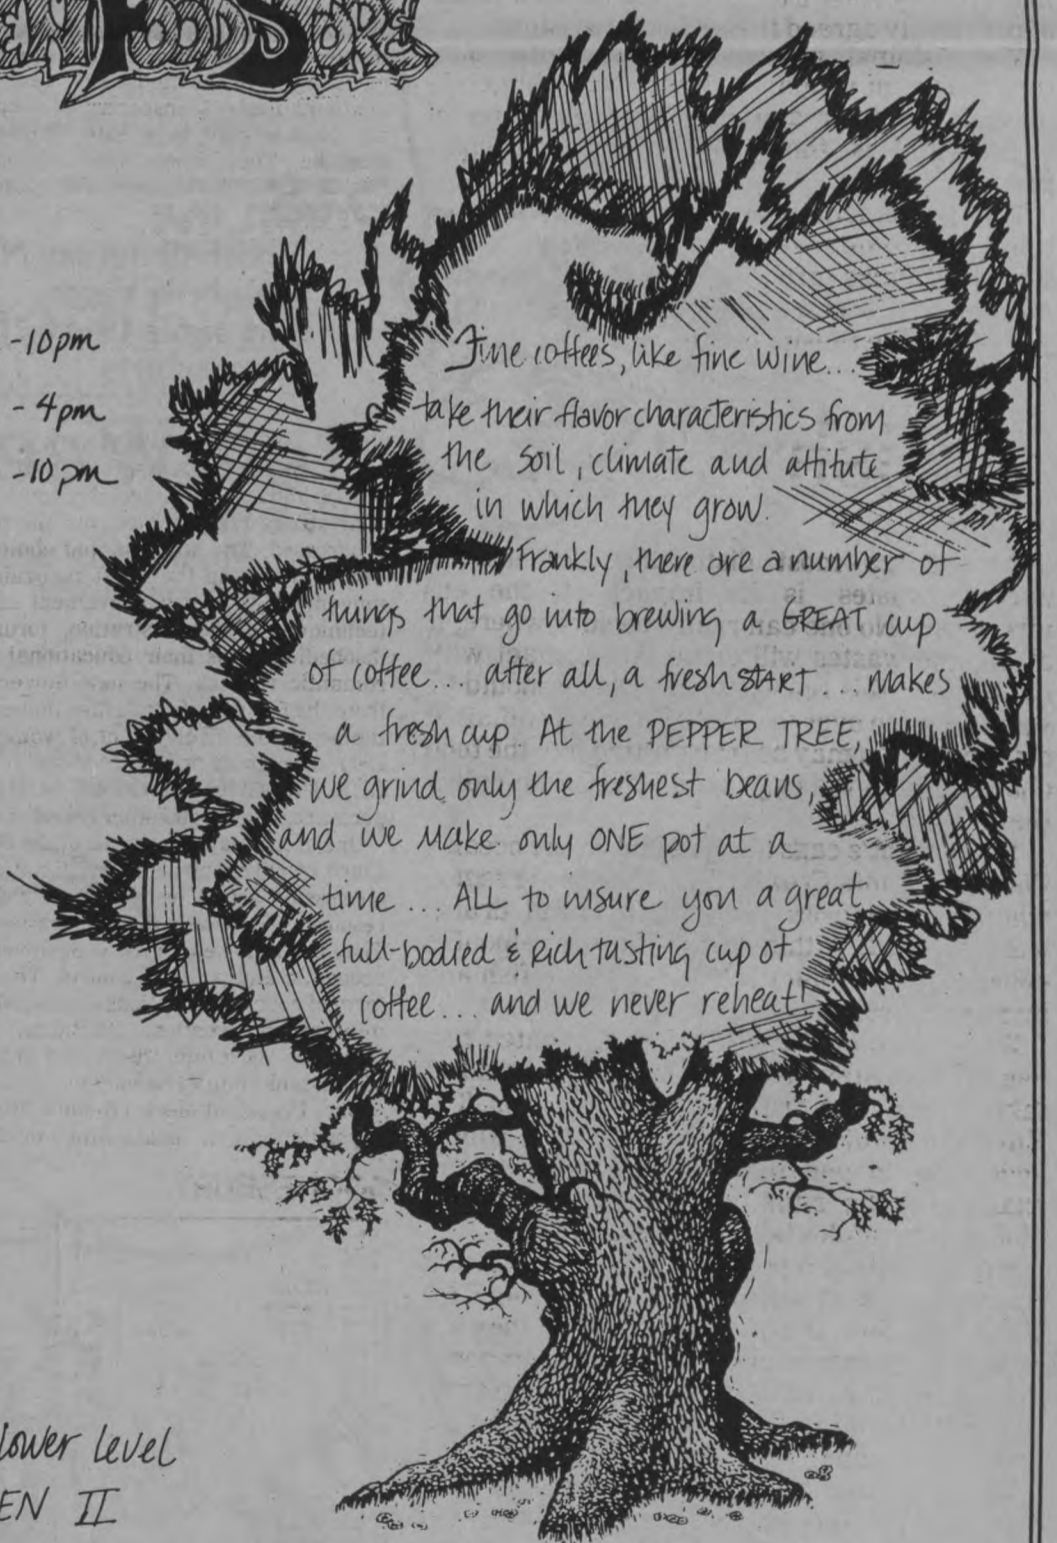 EN FOOD STORE
-10pm
- 4pm
-10pm
Fine coffees, like fine wine...
take their flavor characteristics from
the soil, climate and attitute
in which they grow.
Frankly, there are a number of
things that go into brewing a GREAT cup
of coffee... after all, a fresh START... makes
a fresh cup. At the PEPPER TREE,
we grind only the freshest beans,
and we make only ONE pot at a
time... ALL to insure you a great
full-bodied & Rich tasting cup of
coffee... and we never reheat!
lower level
EN II